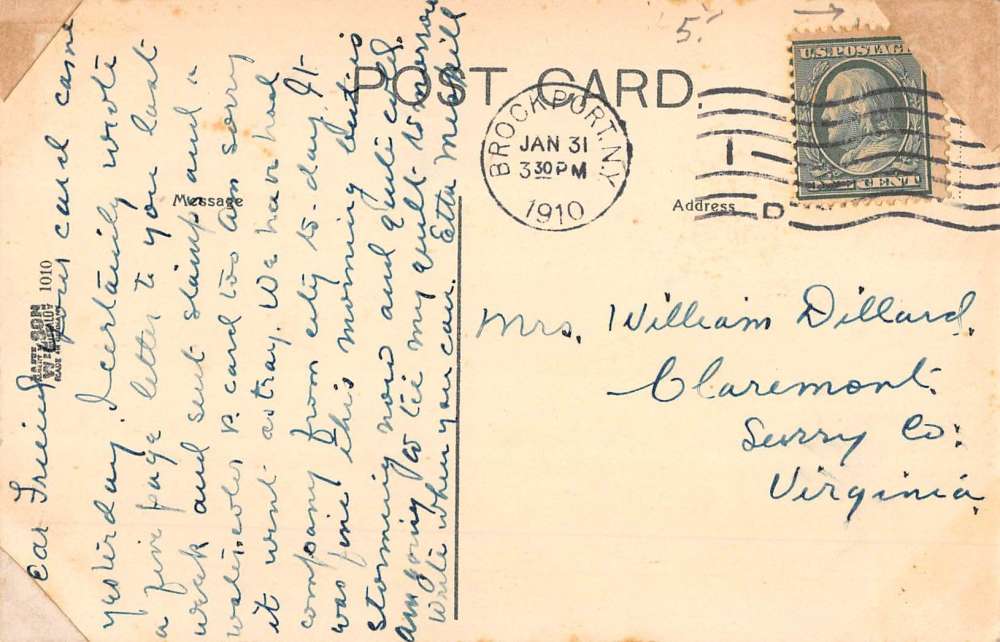 POST CARD.
Message
Address
5.
BROCKPORT, N.Y.
JAN 31
3 30 PM
1910
D
U.S. POSTAGE
CENT
1010
ear Friend your card came
yesterday I certainly wrote
a five page letter to you last
week and sent stamps and a
card too am sorry
it went astray. We have had
company from city to-day. It
was fine this morning but is
storming now and quite cold.
Am going to tie my quilt to-morrow
Write when you can. Etta Merrill
Mrs. William Dillard.
Claremont.
Surry Co.
Virginia